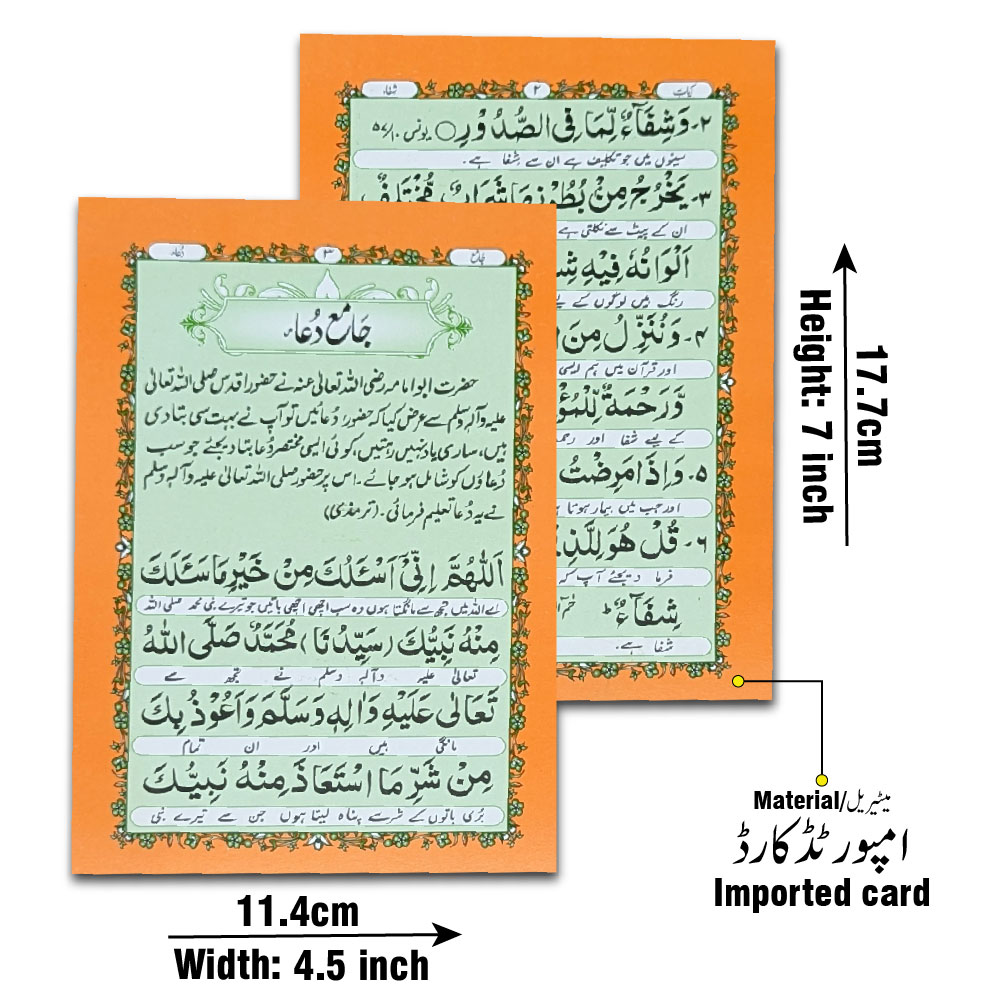 کیات ۲ شفاء
۲۔ وَشِفَآءٌ لِّمَا فِی الصُّدُوْرِ ○ یونس ۱۰/۵۷
سینوں میں جو تکلیف ہے ان سے شفا ہے۔
۳۔ یَخْرُجُ مِنْۢ بُطُوْنِهَا شَرَابٌ مُّخْتَلِفٌ
ان کے پیٹ سے نکلتی ہے
اَلْوَانُهٗ فِیْهِ
رنگ ہیں لوگوں کے
۴۔ وَنُنَزِّلُ مِنَ
اور قرآن میں ہم ایسی
وَّرَحْمَةٌ لِّلْمُؤْ
کے لیے شفا اور
۵۔ وَاِذَا مَرِضْتُ
اور جب میں بیمار ہوتا
۶۔ قُلْ هُوَ لِلَّذِ
فرما دیجئے آپ کہ
شِفَآءٌ ط
شفا ہے۔
جامع ۳ دُعاء
جَامِع دُعاء
حضرت ابو امامہ رضی اللہ تعالیٰ عنہ نے حضور اقدس صلی اللہ تعالیٰ
علیہ وآلہٖ وسلم سے عرض کیا کہ حضور! دُعائیں تو آپ نے بہت سی بتا دی
ہیں، ساری یاد نہیں رہتیں، کوئی ایسی مختصر دُعا بتا دیجئے جو سب
دُعاؤں کو شامل ہو جائے۔ اس پر حضور صلی اللہ تعالیٰ علیہ وآلہٖ وسلم
نے یہ دُعا تعلیم فرمائی۔ (ترمذی)
اَللّٰهُمَّ اِنِّیْۤ اَسْئَلُكَ مِنْ خَیْرِ مَا سَئَلَكَ
اے اللہ میں تجھ سے مانگتا ہوں وہ سب اچھی اچھی باتیں جو تیرے نبی محمد صلی اللہ
مِنْهُ نَبِیُّكَ (سَیِّدُنَا) مُحَمَّدٌ صَلَّی اللّٰهُ
تعالیٰ علیہ وآلہٖ وسلم نے تجھ سے
تَعَالٰی عَلَیْهِ وَاٰلِهٖ وَسَلَّمَ وَاَعُوْذُ بِكَ
مانگی ہیں اور ان تمام
مِنْ شَرِّ مَا اسْتَعَاذَ مِنْهُ نَبِیُّكَ
بُری باتوں کے شر سے پناہ لیتا ہوں جن سے تیرے نبی
17.7cm
Height: 7 inch
Material/میٹیریل
امپورٹڈ کارڈ
Imported card
11.4cm
Width: 4.5 inch